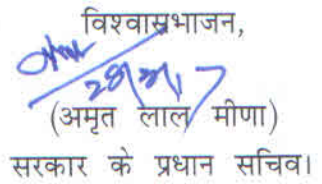 विश्वासभाजन,
28/3/17
(अमृत लाल मीणा)
सरकार के प्रधान सचिव।